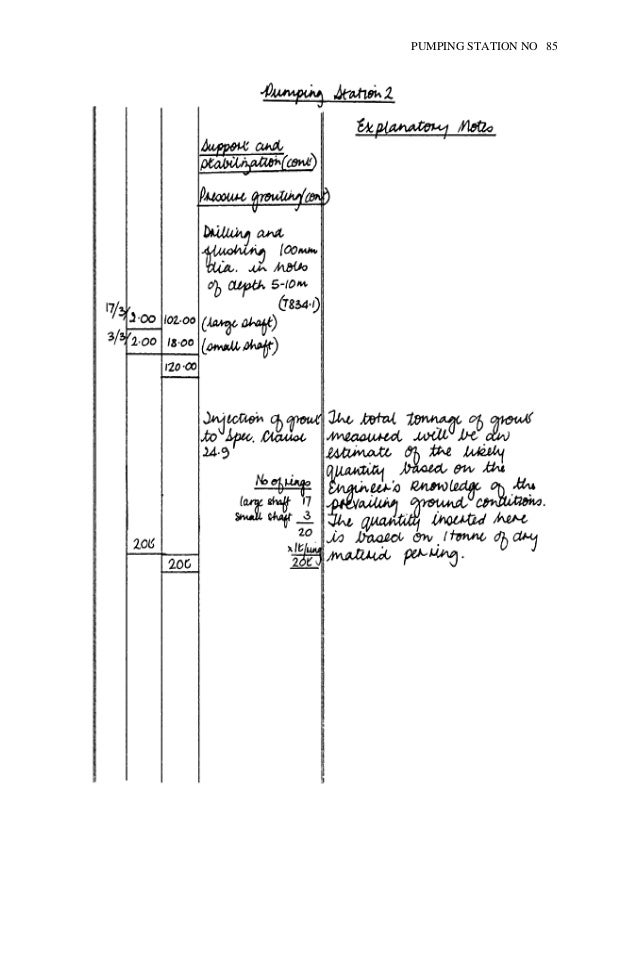 PUMPING STATION NO 85
Pumping Station 2
Explanatory Notes
Support and
stabilization (cont)
Pressure grouting (cont)
Drilling and
flushing 100mm
dia. in holes
of depth 5-10m
(T834.1)
17/3/ 2.00 102.00 (large shaft)
3/3/ 2.00 18.00 (small shaft)
120.00
Injection of grout
to Spec. Clause
24.9
No of rings
large shaft 17
small shaft 3
20
20t x1t/ring
20t 20t
The total tonnage of grout
measured will be an
estimate of the likely
quantity based on the
Engineer's knowledge of the
prevailing ground conditions.
The quantity inserted here
is based on 1 tonne of dry
material per ring.